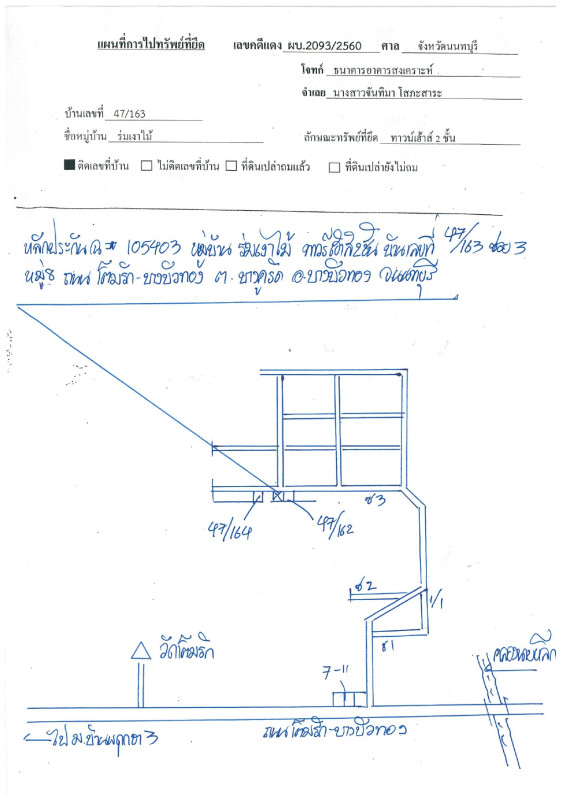 แผนที่การไปทรัพย์ที่ยึด เลขคดีแดง ผบ.2093/2560 ศาล จังหวัดนนทบุรี
โจทก์ ธนาคารอาคารสงเคราะห์
จำเลย นางสาวจันทิมา โสภะสาระ
บ้านเลขที่ 47/163
ชื่อหมู่บ้าน ร่มเงาไม้ ลักษณะทรัพย์ที่ยึด ทาวน์เฮ้าส์ 2 ชั้น
ติดเลขที่บ้าน ไม่ติดเลขที่บ้าน ที่ดินเปล่าถมแล้ว ที่ดินเปล่ายังไม่ถม
หลักประกัน ฉ # 105403 หมู่บ้าน ร่มเงาไม้ บ้านเลขที่ 47/163 ซอย 3
หมู่ 8 ถนน บางบัวทอง ต. บางคูรัด อ. บางบัวทอง จ.นนทบุรี
ซ 3
47/164
47/162
ซ 2
1/1
ซ 1
7-11
ไป ม.บ้านพฤกษา 3